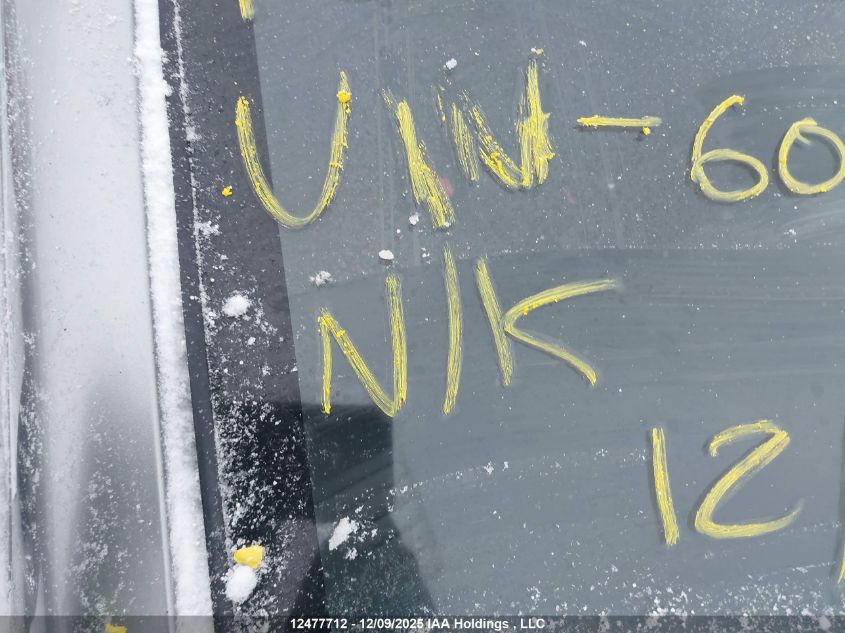 VIN-60
N/K
12
12477712 - 12/09/2025 IAA Holdings , LLC